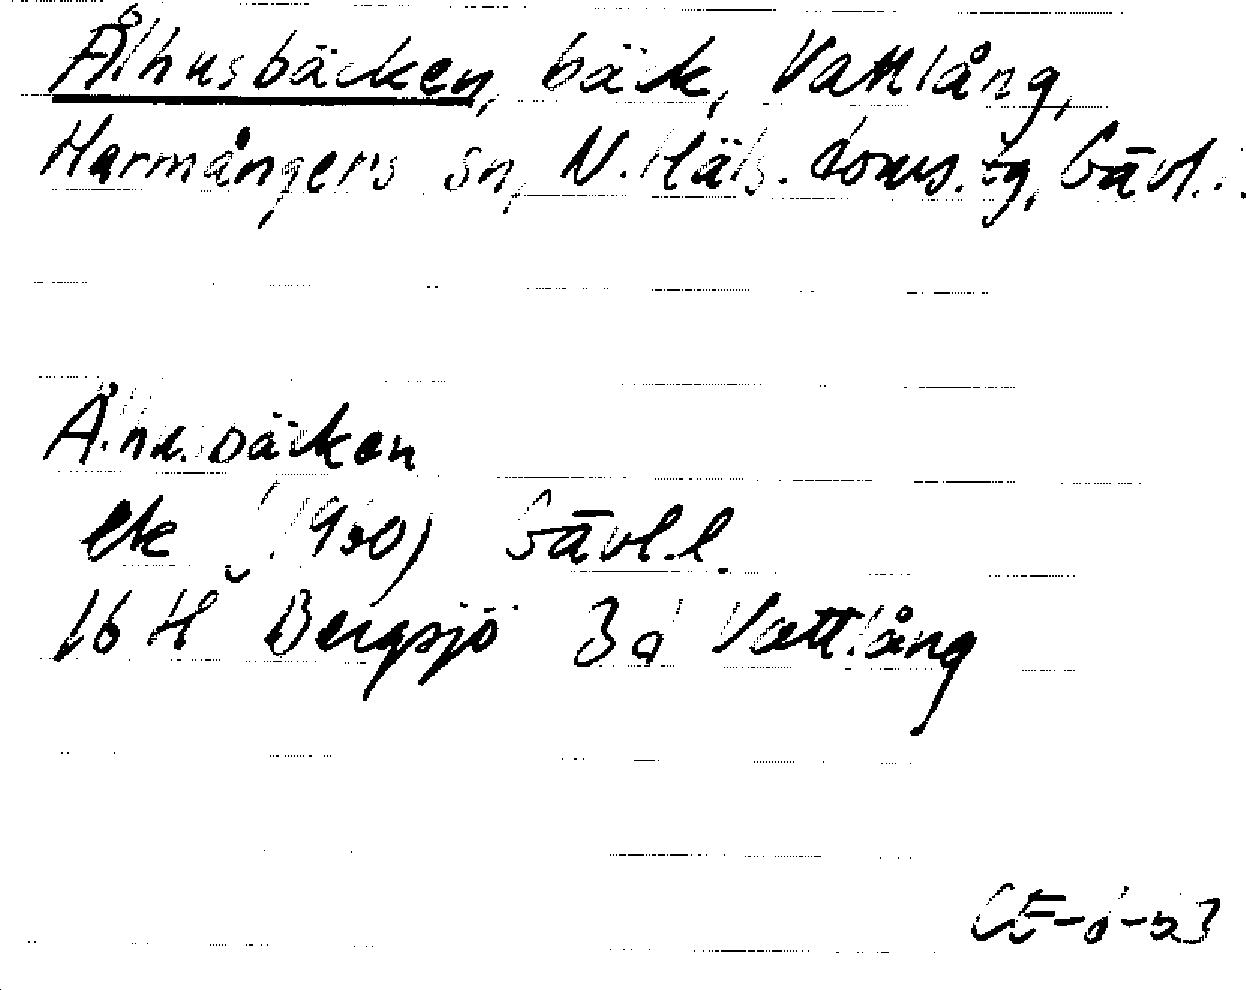 Ålhusbäcken, bäck, Vattlång,
Harmångers sn, N. Häls. doms. tg, Gävl. l.
Ålhusbäcken
ek (1950) Gävl. l.
16 H Bergsjö 3d Vattlång